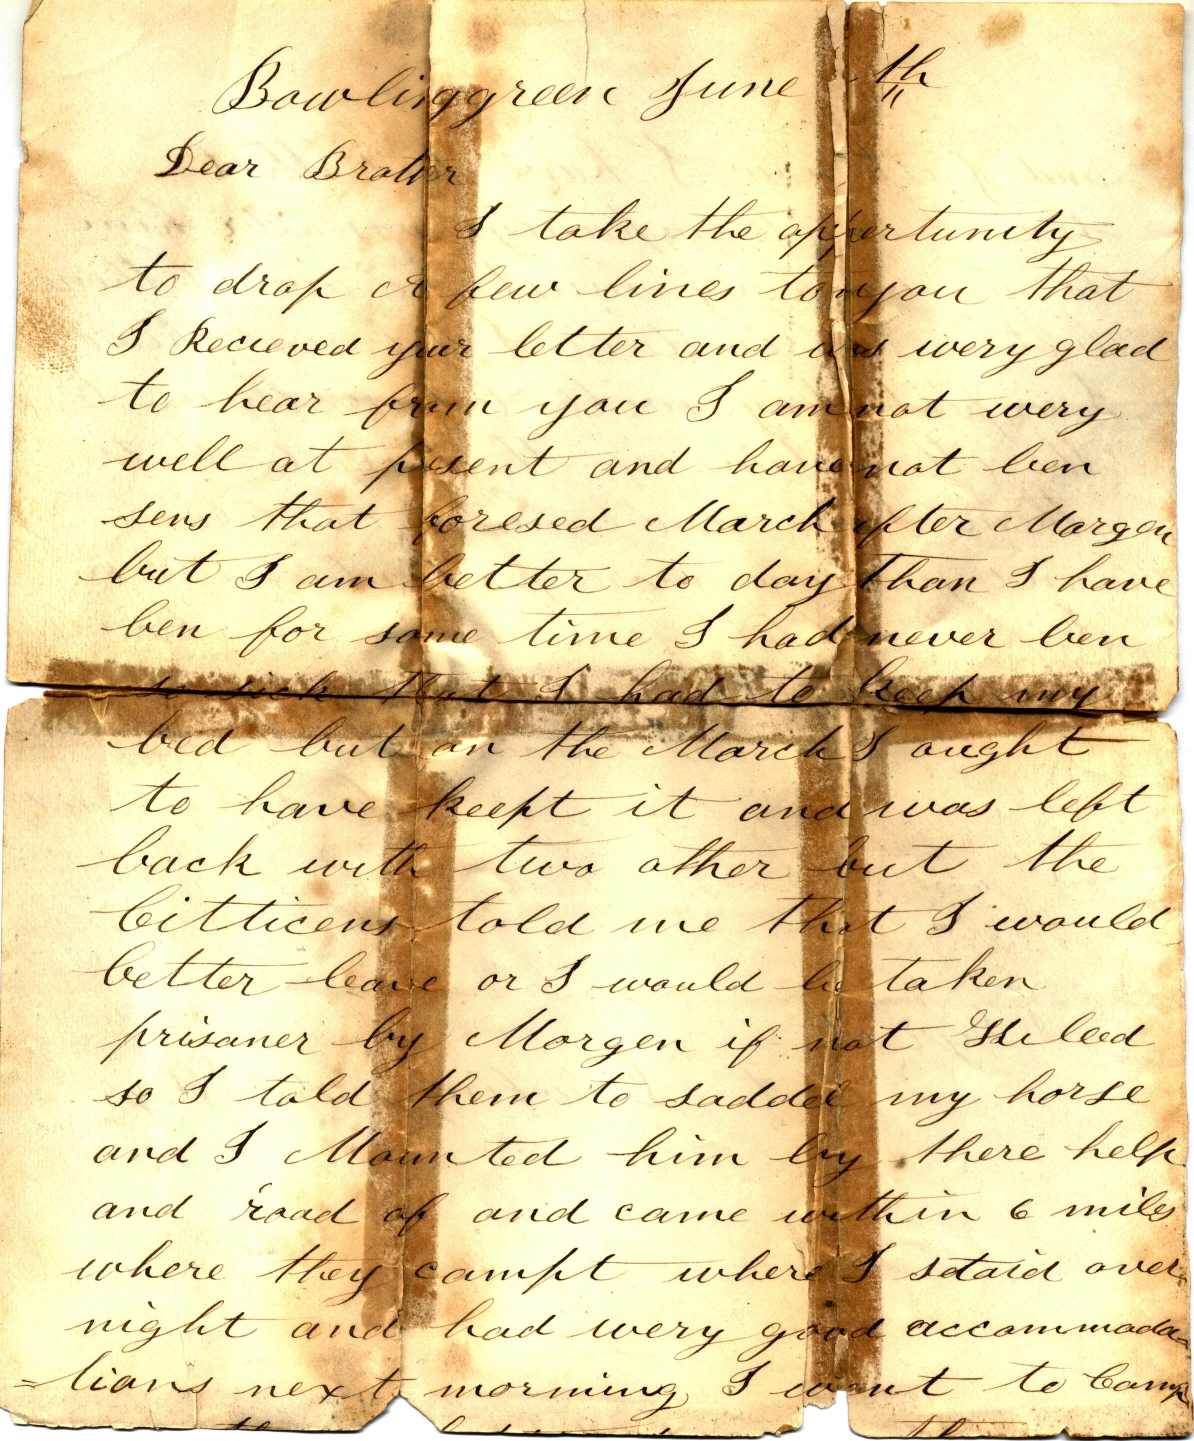 Bowlinggreen June th
Dear Brother
I take the oppertunity
to drop a few lines to you that
I Recieved your letter and was wery glad
to hear from you I am not wery
well at present and have not ben
sens that foresed March after Morgen
but I am better to day than I have
ben for some time I had never ben
so sick that I had to keep my
bed but on the March I ought
to have keept it and was left
back with two other but the
Citticens told me that I would
better leave or I would be taken
prisoner by Morgen if not
so I told them to saddel my horse
and I Mounted him by there help
and road of and came within 6 miles
where they campt where I staid over
night and had wery good accommoda=
=tions next morning I went to Camp